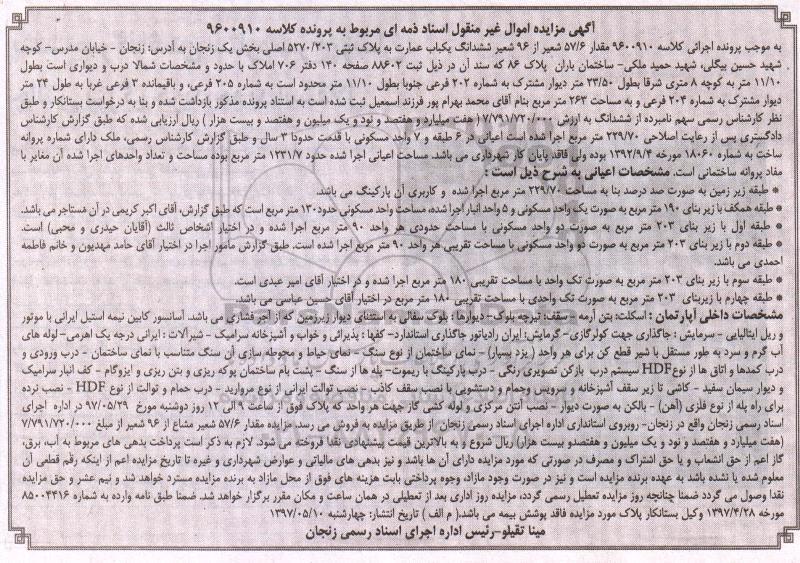 آگهی مزایده اموال غیر منقول اسناد ذمه ای مربوط به پرونده کلاسه ۹۶۰۰۹۱۰
به موجب پرونده اجرائی کلاسه ۹۶۰۰۹۱۰ مقدار ۵۷/۶ شعیر از ۹۶ شعیر ششدانگ یکباب عمارت به پلاک ثبتی ۵۲۷۰/۲۰۳ اصلی بخش یک زنجان به آدرس: زنجان - خیابان مدرس- کوچه
شهید حسین بیگلی، شهید حمید ملکی- ساختمان باران پلاک ۸۶ که سند آن در ذیل ثبت ۸۸۶۰۲ صفحه ۱۴۰ دفتر ۷۰۶ املاک با حدود و مشخصات شمالا درب و دیواری است بطول
۱۱/۱۰ متر به کوچه ۸ متری شرقا بطول ۲۳/۵۰ متر دیوار مشترک به شماره ۲۰۲ فرعی جنوبا بطول ۱۱/۱۰ متر محدود است به شماره ۲۰۵ فرعی، و باقیمانده ۳ فرعی غربا به طول ۲۴ متر
دیوار مشترک به شماره ۲۰۴ فرعی و به مساحت ۲۶۳ متر مربع بنام آقای محمد بهرام پور فرزند اسمعیل ثبت شده است به استناد پرونده مذکور بازداشت شده و بنا به درخواست بستانکار و طبق
نظر کارشناس رسمی سهم نامبرده از ششدانگ به ارزش ۷/۷۹۱/۷۲۰/۰۰۰ ( هفت میلیارد و هفتصد و نود و یک میلیون و هفتصد و بیست هزار ) ریال ارزیابی شده که طبق گزارش کارشناس
دادگستری پس از رعایت اصلاحی ۲۲۹/۷۰ متر مربع اجرا شده است اعیانی در ۶ طبقه و ۷ واحد مسکونی با قدمت حدودا ۳ سال و طبق گزارش کارشناس رسمی، ملک دارای شماره پروانه
ساخت به شماره ۱۸۰۶۰ مورخه ۱۳۹۲/۹/۴ بوده ولی فاقد پایان کار شهرداری می باشد. مساحت اعیانی اجرا شده حدود ۱۲۳۱/۷ متر مربع بوده مساحت و تعداد واحدهای اجرا شده آن مغایر با
مفاد پروانه ساختمانی است. مشخصات اعیانی به شرح ذیل است :
* طبقه زیر زمین به صورت صد درصد بنا به مساحت ۲۲۹/۷۰ متر مربع اجرا شده و کاربری آن پارکینگ می باشد.
* طبقه همکف با زیر بنای ۱۹۰ متر مربع به صورت یک واحد مسکونی و ۵ واحد انبار اجرا شده، مساحت واحد مسکونی حدود ۱۳۰ متر مربع است که طبق گزارش، آقای اکبر کریمی در آن مستاجر می باشد.
* طبقه اول با زیر بنای ۲۰۳ متر مربع به صورت دو واحد مسکونی با مساحت حدودی هر واحد ۹۰ متر مربع اجرا شده و در اختیار اشخاص ثالث (آقایان حیدری و محبی) است.
* طبقه دوم با زیر بنای ۲۰۳ متر مربع به صورت دو واحد مسکونی با مساحت تقریبی هر واحد ۹۰ متر مربع اجرا شده است. طبق گزارش مامور اجرا در اختیار آقای حامد مهدیون و خانم فاطمه
احمدی می باشد.
* طبقه سوم با زیر بنای ۲۰۳ متر مربع به صورت تک واحد با مساحت تقریبی ۱۸۰ متر مربع اجرا شده و در اختیار آقای امیر عبدی است.
* طبقه چهارم با زیربنای ۲۰۳ متر مربع به صورت تک واحدی با مساحت تقریبی ۱۸۰ متر مربع در اختیار آقای حسین عباسی می باشد.
مشخصات داخلی آپارتمان : اسکلت: بتن آرمه - سقف: تیرچه بلوک- دیوارها : بلوک سفالی به استثنای دیوار زیرزمین که از آجر فشاری می باشد. آسانسور کابین نیمه استیل ایرانی با موتور
و ریل ایتالیایی - سرمایش : جاگذاری جهت کولرگازی- گرمایش: ایران رادیاتور جاگذاری استاندارد- کفها : پذیرائی و خواب و آشپزخانه سرامیک - شیرآلات : ایرانی درجه یک اهرمی- لوله های
آب گرم و سرد به طور مستقل با شیر قطع کن برای هر واحد ( یزد بسپار) - نمای ساختمان از نوع سنگ- نمای حیاط و محوطه سازی آن سنگ متناسب با نمای ساختمان - درب ورودی و
درب کمدها و اتاق ها از نوع HDF سیستم درب بازکن تصویری رنگی - درب پارکینگ با ریموت- پله ها از سنگ - پشت بام ساختمان پوکه ریزی و بتن ریزی و ایزوگام - کف انبار سرامیک
و دیوار سیمان سفید - کاشی تا زیر سقف آشپزخانه و سرویس وحمام و دستشویی با نصب سقف کاذب - نصب توالت ایرانی از نوع مروارید - درب حمام و توالت از نوع HDF - نصب نرده
برای راه پله از نوع فلزی (آهن) - بالکن به صورت دیوار - نصب آنتن مرکزی و لوله کشی گاز جهت هر واحد که پلاک فوق از ساعت ۹ الی ۱۲ روز دوشنبه مورخ ۹۷/۰۵/۲۹ در اداره اجرای
اسناد رسمی زنجان واقع در زنجان- روبروی استانداری اداره اجرای اسناد رسمی زنجان از طریق مزایده به فروش می رسد. مزایده مقدار ۵۷/۶ شعیر مشاع از ۹۶ شعیر از مبلغ ۷/۷۹۱/۷۲۰/۰۰۰
(هفت میلیارد و هفتصد و نود و یک میلیون و هفتصدو بیست هزار) ریال شروع و به بالاترین قیمت پیشنهادی نقدا فروخته می شود. لازم به ذکر است پرداخت بدهی های مربوط به آب، برق،
گاز اعم از حق انشعاب و یا حق اشتراک و مصرف در صورتی که مورد مزایده دارای آن ها باشد و نیز بدهی های مالیاتی و عوارض شهرداری و غیره تا تاریخ مزایده اعم از اینکه رقم قطعی آن
معلوم شده یا نشده باشد به عهده برنده مزایده است و نیز در صورت وجود مازاد، وجوه پرداختی بابت هزینه های فوق از محل مازاد به برنده مزایده مسترد خواهد شد و نیم عشر و حق مزایده
نقدا وصول می گردد ضمنا چنانچه روز مزایده تعطیل رسمی گردد، مزایده روز اداری بعد از تعطیلی در همان ساعت و مکان مقرر برگزار خواهد شد. ضمنا طبق نامه وارده به شماره ۸۵۰۰۴۴۱۶
مورخه ۱۳۹۷/۴/۲۸ وکیل بستانکار پلاک مورد مزایده فاقد پوشش بیمه می باشد.( م الف ) تاریخ انتشار: چهارشنبه ۱۳۹۷/۰۵/۱۰
مینا تقیلو-رئیس اداره اجرای اسناد رسمی زنجان